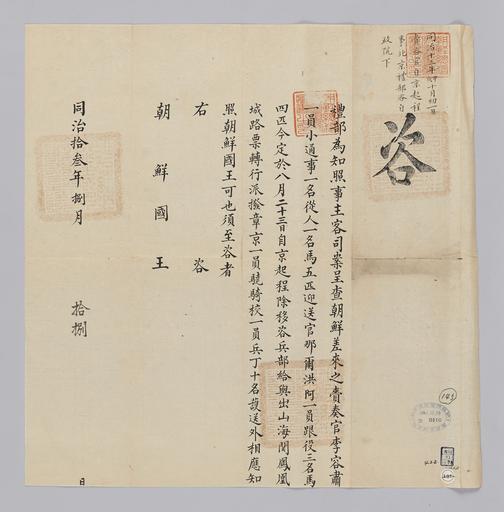 同治十三年
咨
禮部為知照事主客司案呈查朝鮮差來之賫奏官李容肅
一員小通事一名從人一名馬五匹迎送官那爾洪阿一員跟役三名馬
四匹今定於八月二十三日自京起程除移咨兵部給與出山海關鳳凰
城路票轉行派撥章京一員驍騎校一員兵丁十名護送外相應知
照朝鮮國王可也須至咨者
右 咨
朝鮮國王
同治拾叁年捌月 拾捌 日